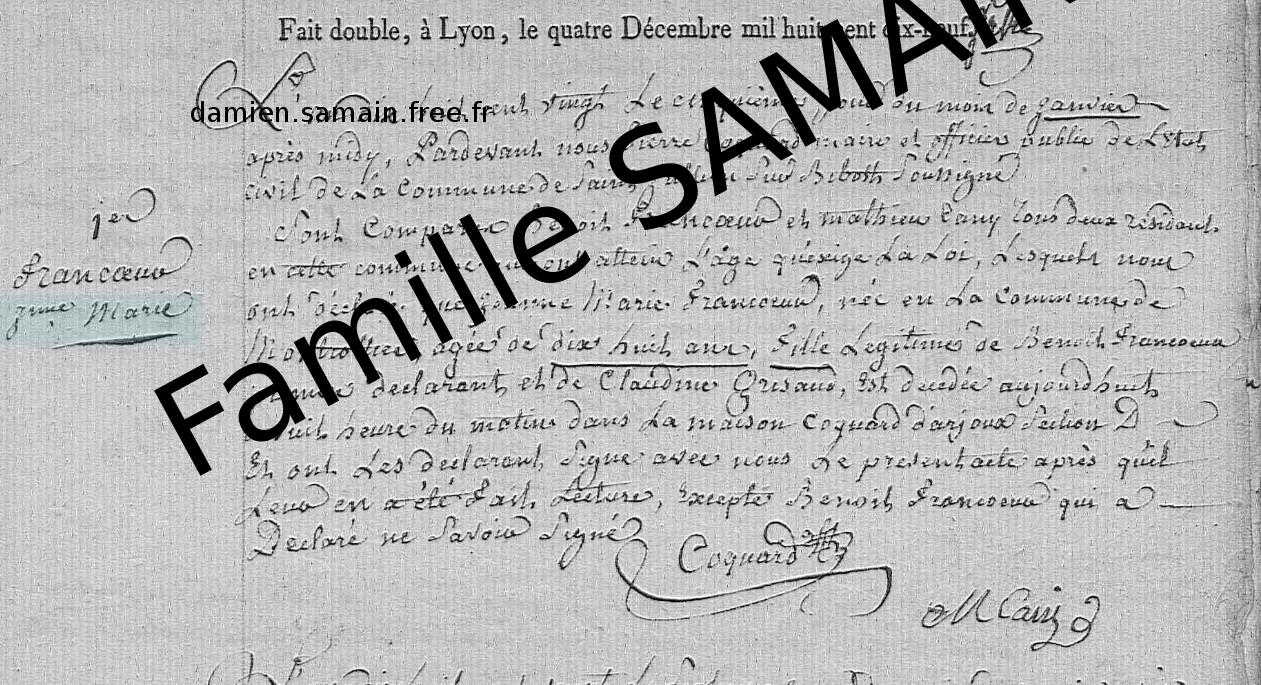 Fait double, à Lyon, le quatre Décembre mil huit cent dix-neuf.
damien.samain.free.fr
Famille SAMAIN
vingt Le cinquième jour du mois de janvier
après midy, Pardevant nous Pierre Coquard maire et officier public de L'Etat
civil de La Commune de Saint Julien Sur Bibost Soussigné
1er
Sont Comparu Benoit Francoeur et mathieu Cany Tous deux résidant
Francoeur
en cette commune ont atteint L'âge qu'exige La Loi, Lesquels nous
jnne Marie
ont déclaré que jeanne Marie Francoeur, née en La Commune de
Montrottier, agée de dix huit ans, Fille Legitime de Benoit Francoeur
declarant et de Claudine Grisaud, Est decedée aujourd'huit
huit heure du matin dans La maison Coquard d'arjoux Section D
Et ont Les declarant Signe avec nous Le present acte après qu'il
Leur en a été Fait Lecture, Excepté Benoit Francoeur qui a
Declaré ne Savoir Signé
Coquard
M Cany